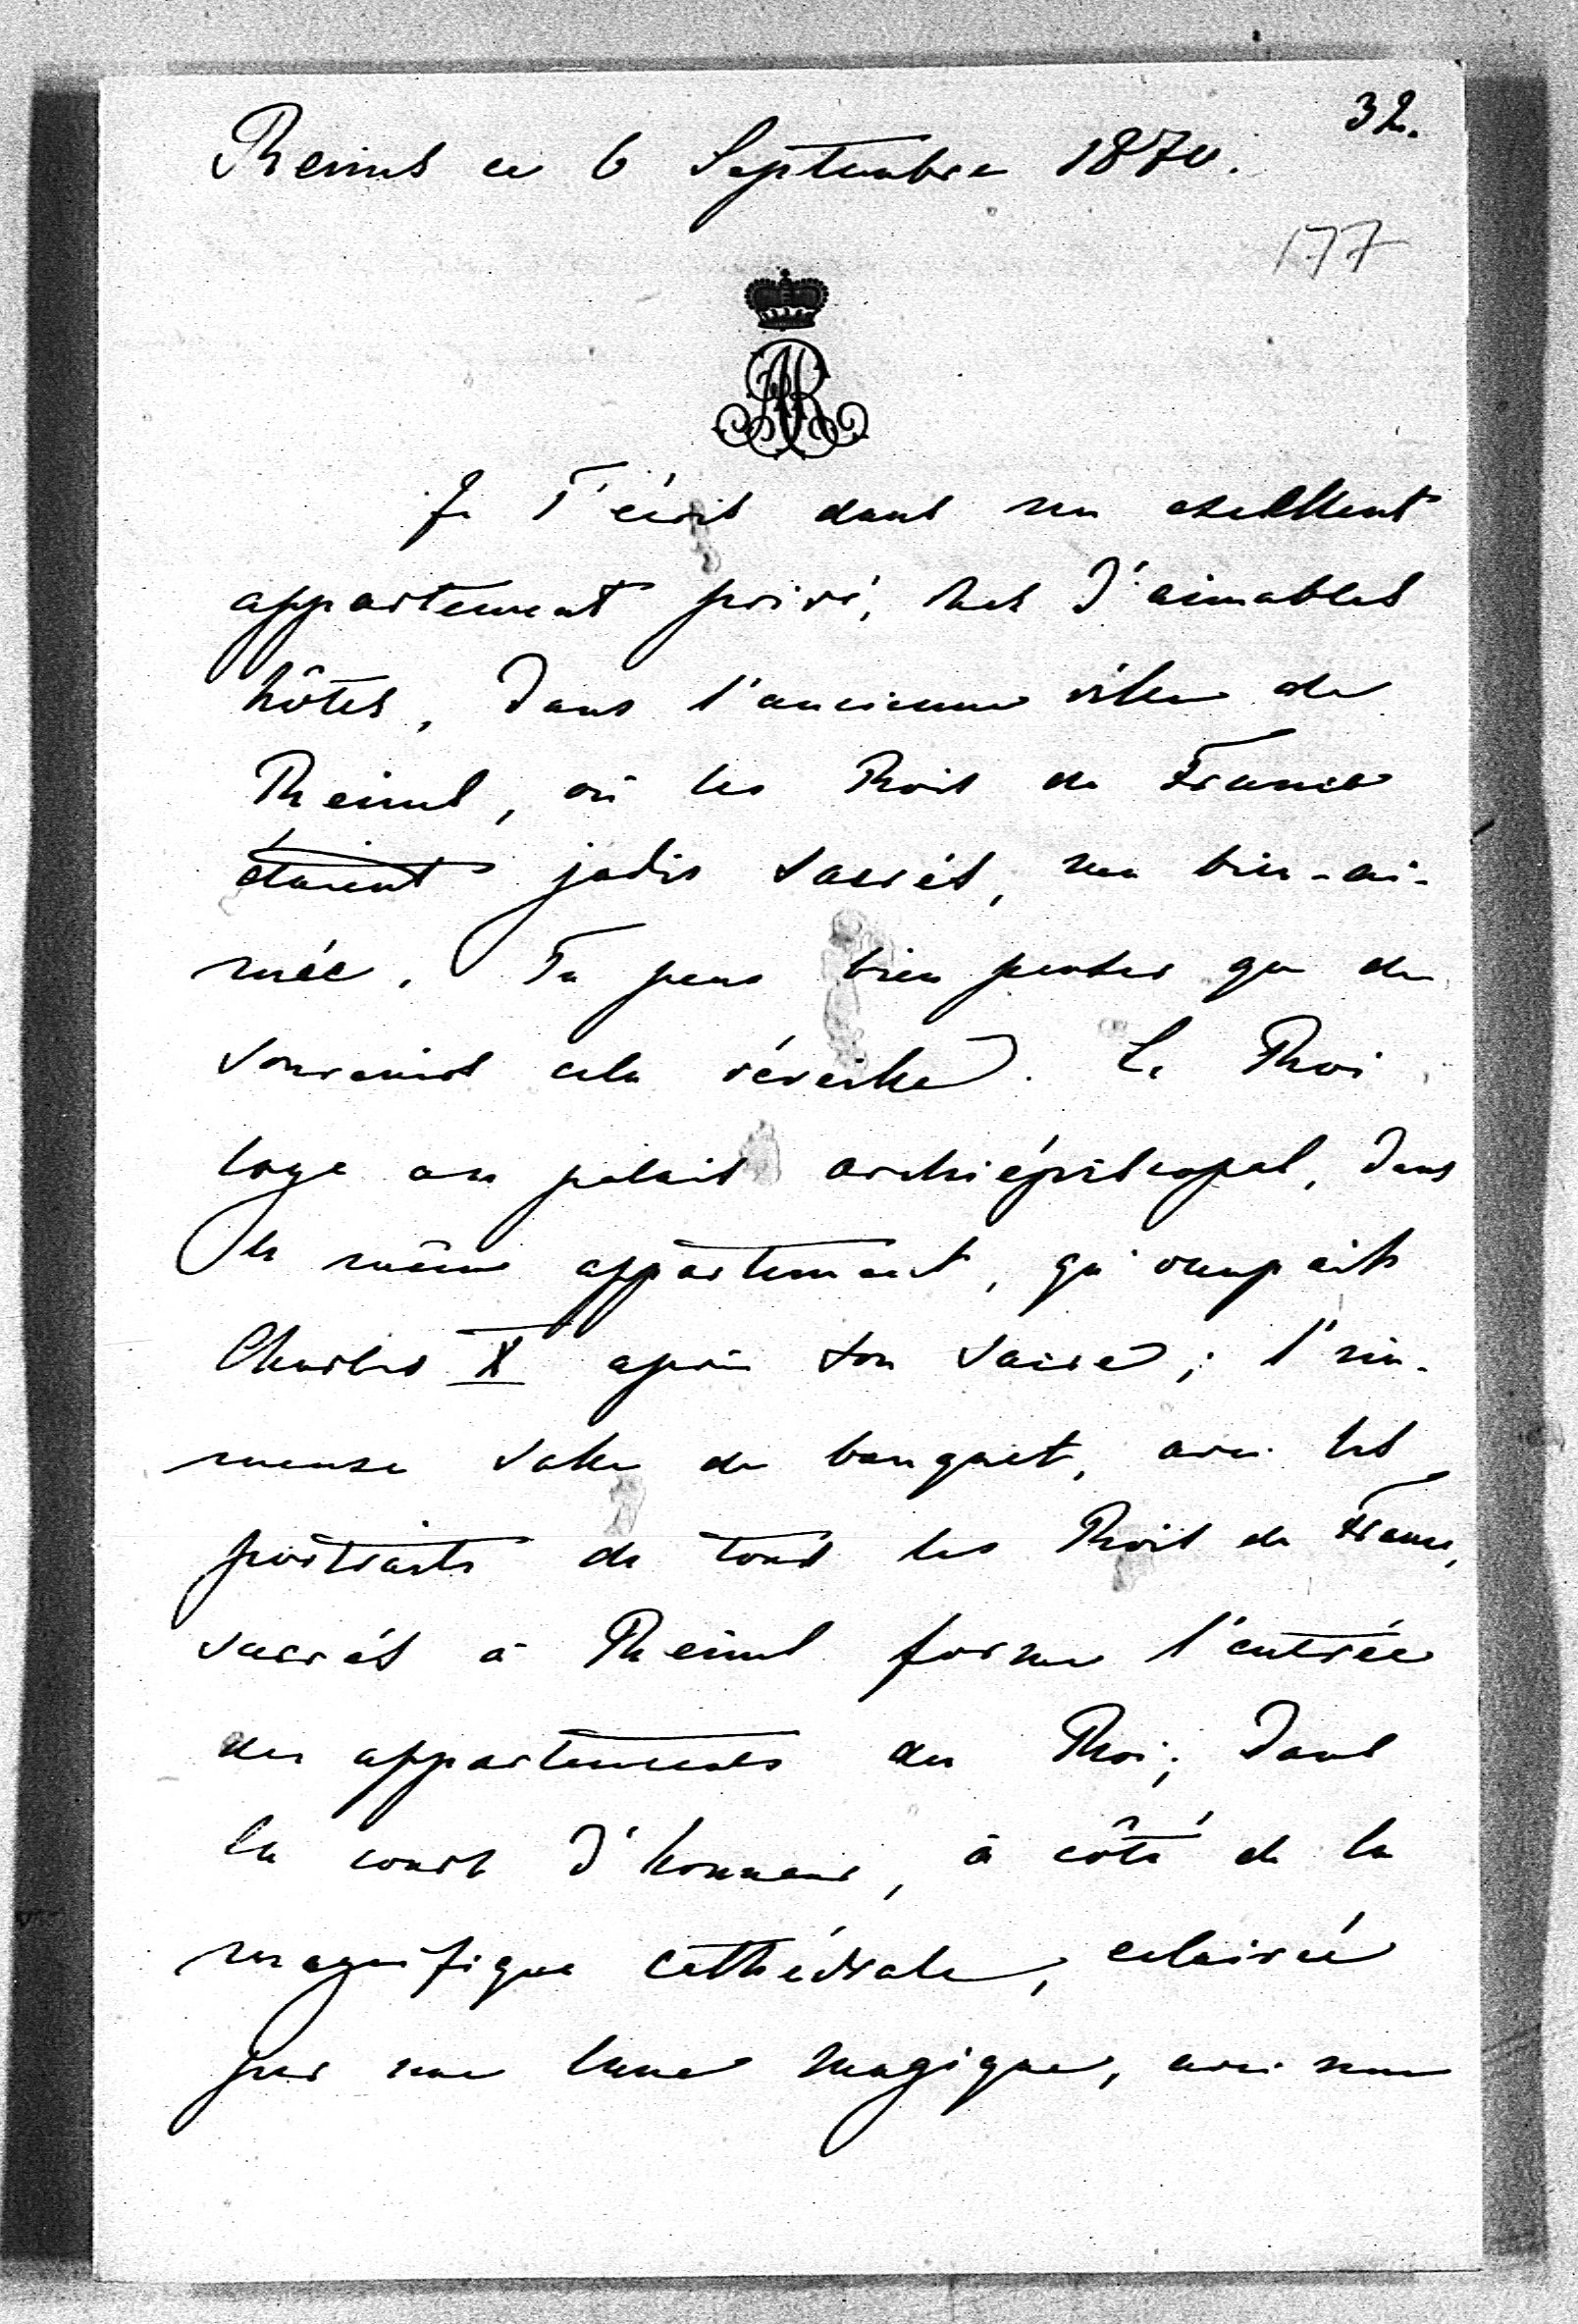 32.
Reims ce 6 Septembre 1870.
177
Je T'écris dans un exellent
appartement privé, chez d'aimables
hôtes, dans l'ancienne ville de
Reims, où les Rois de France
étaient jadis sacrés, ma bien-ai-
mée. Tu peus bien penser que de
souvenirs cela réveille. Le Roi
loge au palais archiépiscopal, dans
le même appartement, qu'occupait
Charles X après son sacre; l'im-
mense salle de banquet, avec les
portraits de tous les Rois de France,
sacrés à Reims forme l'entrée
des appartements du Roi; dans
la cour d'honneur, à côté de la
magnifique cathédrale, eclairée
par une lune magique, avec une